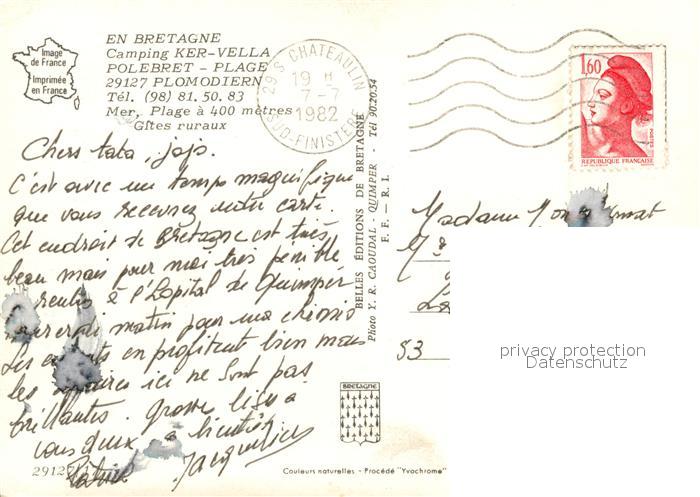 Image
de France
Imprimée
en France
EN BRETAGNE
Camping KER-VELLA
POLEBRET - PLAGE
29127 PLOMODIERN
Tél. (98) 81.50.83
Mer, Plage à 400 mètres
Gîtes ruraux
29 S CHATEAULIN
19 H
7-7
1982
SUD-FINISTERE
1,60
POSTES
REPUBLIQUE FRANÇAISE
Chers tata, jojo.
C'est avec un temps magnifique
que vous recevrez notre carte.
Cet endroit de Bretagne est très
beau mais pour moi très pénible
à l'Hopital de Quimper
matin pour une
Les en profitent bien mais
les ici ne sont pas
brillantes. grosse bises à
vous deux à bientôt
Patrick Jacqueline
29127
BELLES ÉDITIONS DE BRETAGNE
Photo Y. R. CAOUDAL - QUIMPER - Tél 90.20.54
F. F. — R. I.
BRETAGNE
Couleurs naturelles - Procédé "Yvachrome"
Madame
53
privacy protection
Datenschutz